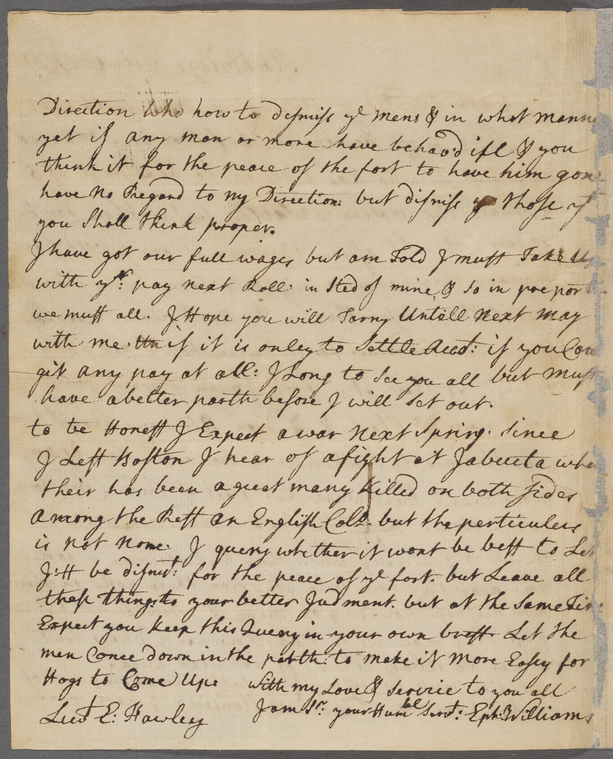 Direction how to dismiss ye mens & in what mann
yet if any man or more have behav'd ill & you
think it for the peace of the fort to have him gon
have No Regard to my Direction: but dismiss those
you Shall think proper.
I have got our full wages but am Told I must Take
with yr: pay next Roll in sted of mine, & so in preport
we must all. I Hope you will Tarry Untall Next may
with me. if it is onley to Settle Acct: if you Con
git any pay at all: I Long to See you all but Must
have a better parth before I will Set out.
to be Honest I Expect a war Next Spring. Since
I Left Boston I hear of a fight at Jabucta wher
their has been a great many Killed on both Sides
among the Rest an English Coll. but the perticulers
is not None. I query whether it wont be best to Let
J:H be dismist: for the peace of ye fort. but Leave all
these things to your better Judment. but at the Same
Expect you keep this Query in your own brest Let the
men Come down in the parth: to make it More Easey for
Hogs to Come Up: with my Love & Servrice to you all
Iam Sr. your Humble Servt: Eph: Williams
Liet E: Hawley